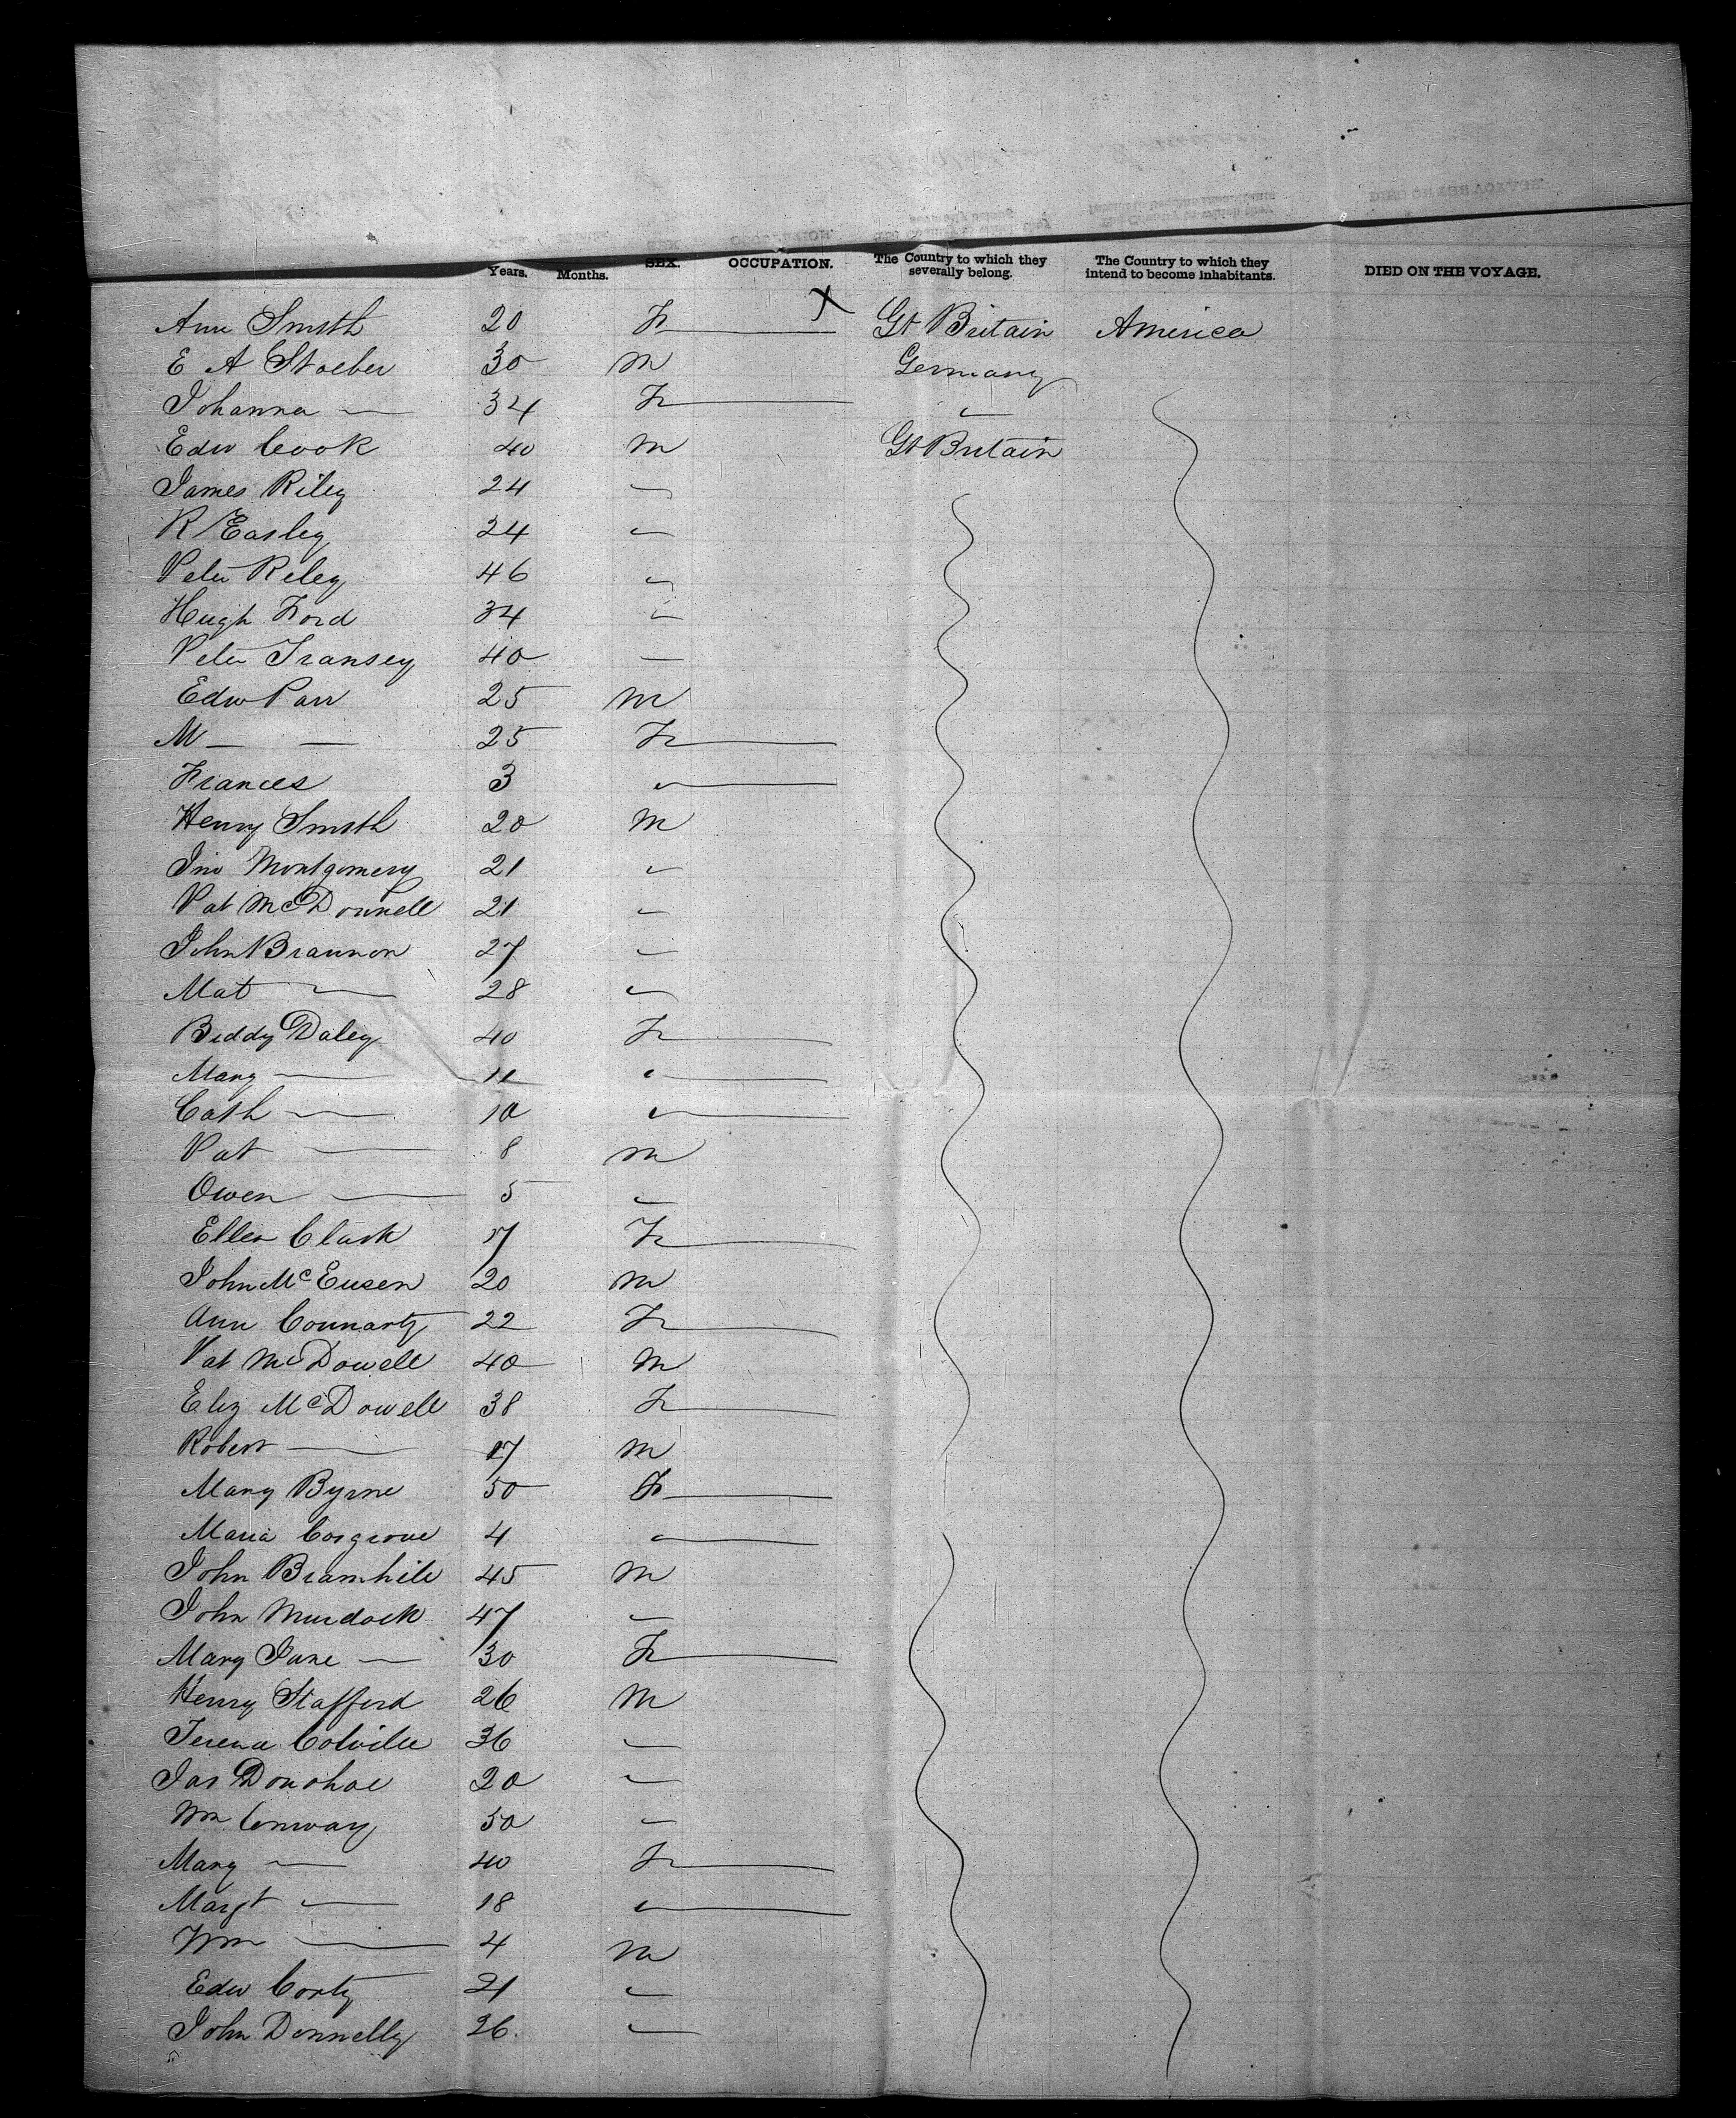 Years. Months. SEX. OCCUPATION. The Country to which they severally belong. The Country to which they intend to become inhabitants. DIED ON THE VOYAGE.
Ann Smith 20 F X Gt Britain America
E A Stoeber 30 M Germany
Johanna — 34 F —
Edw Cook 40 M Gt Britain
James Riley 24 —
R Easley 24 —
Peter Reley 46 —
Hugh Ford 34 —
Peter Transey 40 —
Edw Parr 25 M
M — — 25 F
Frances 3 —
Henry Smith 20 M
Jno Montgomery 21 —
Pat McDonnell 21 —
John Brannon 27 —
Mat — 28 —
Biddy Daley 40 F
Mary — 11 —
Cath — 10 —
Pat — 8 M
Owen — 5 —
Ellen Clark 17 F
John McEusen 20 M
Ann Connarty 22 F
Pat McDowell 40 M
Eliz McDowell 38 F
Robert — 17 M
Mary Byrne 50 F
Maria Cosgrove 4 —
John Bramhile 45 M
John Murdock 47 —
Mary Jane — 30 F
Henry Stafford 26 M
Terence Colville 36 —
Jas Donohoe 20 —
Wm Conway 50 —
Mary — 40 F
Margt — 18 —
Wm — 4 M
Edw Corty 21 —
John Donnelly 26. —